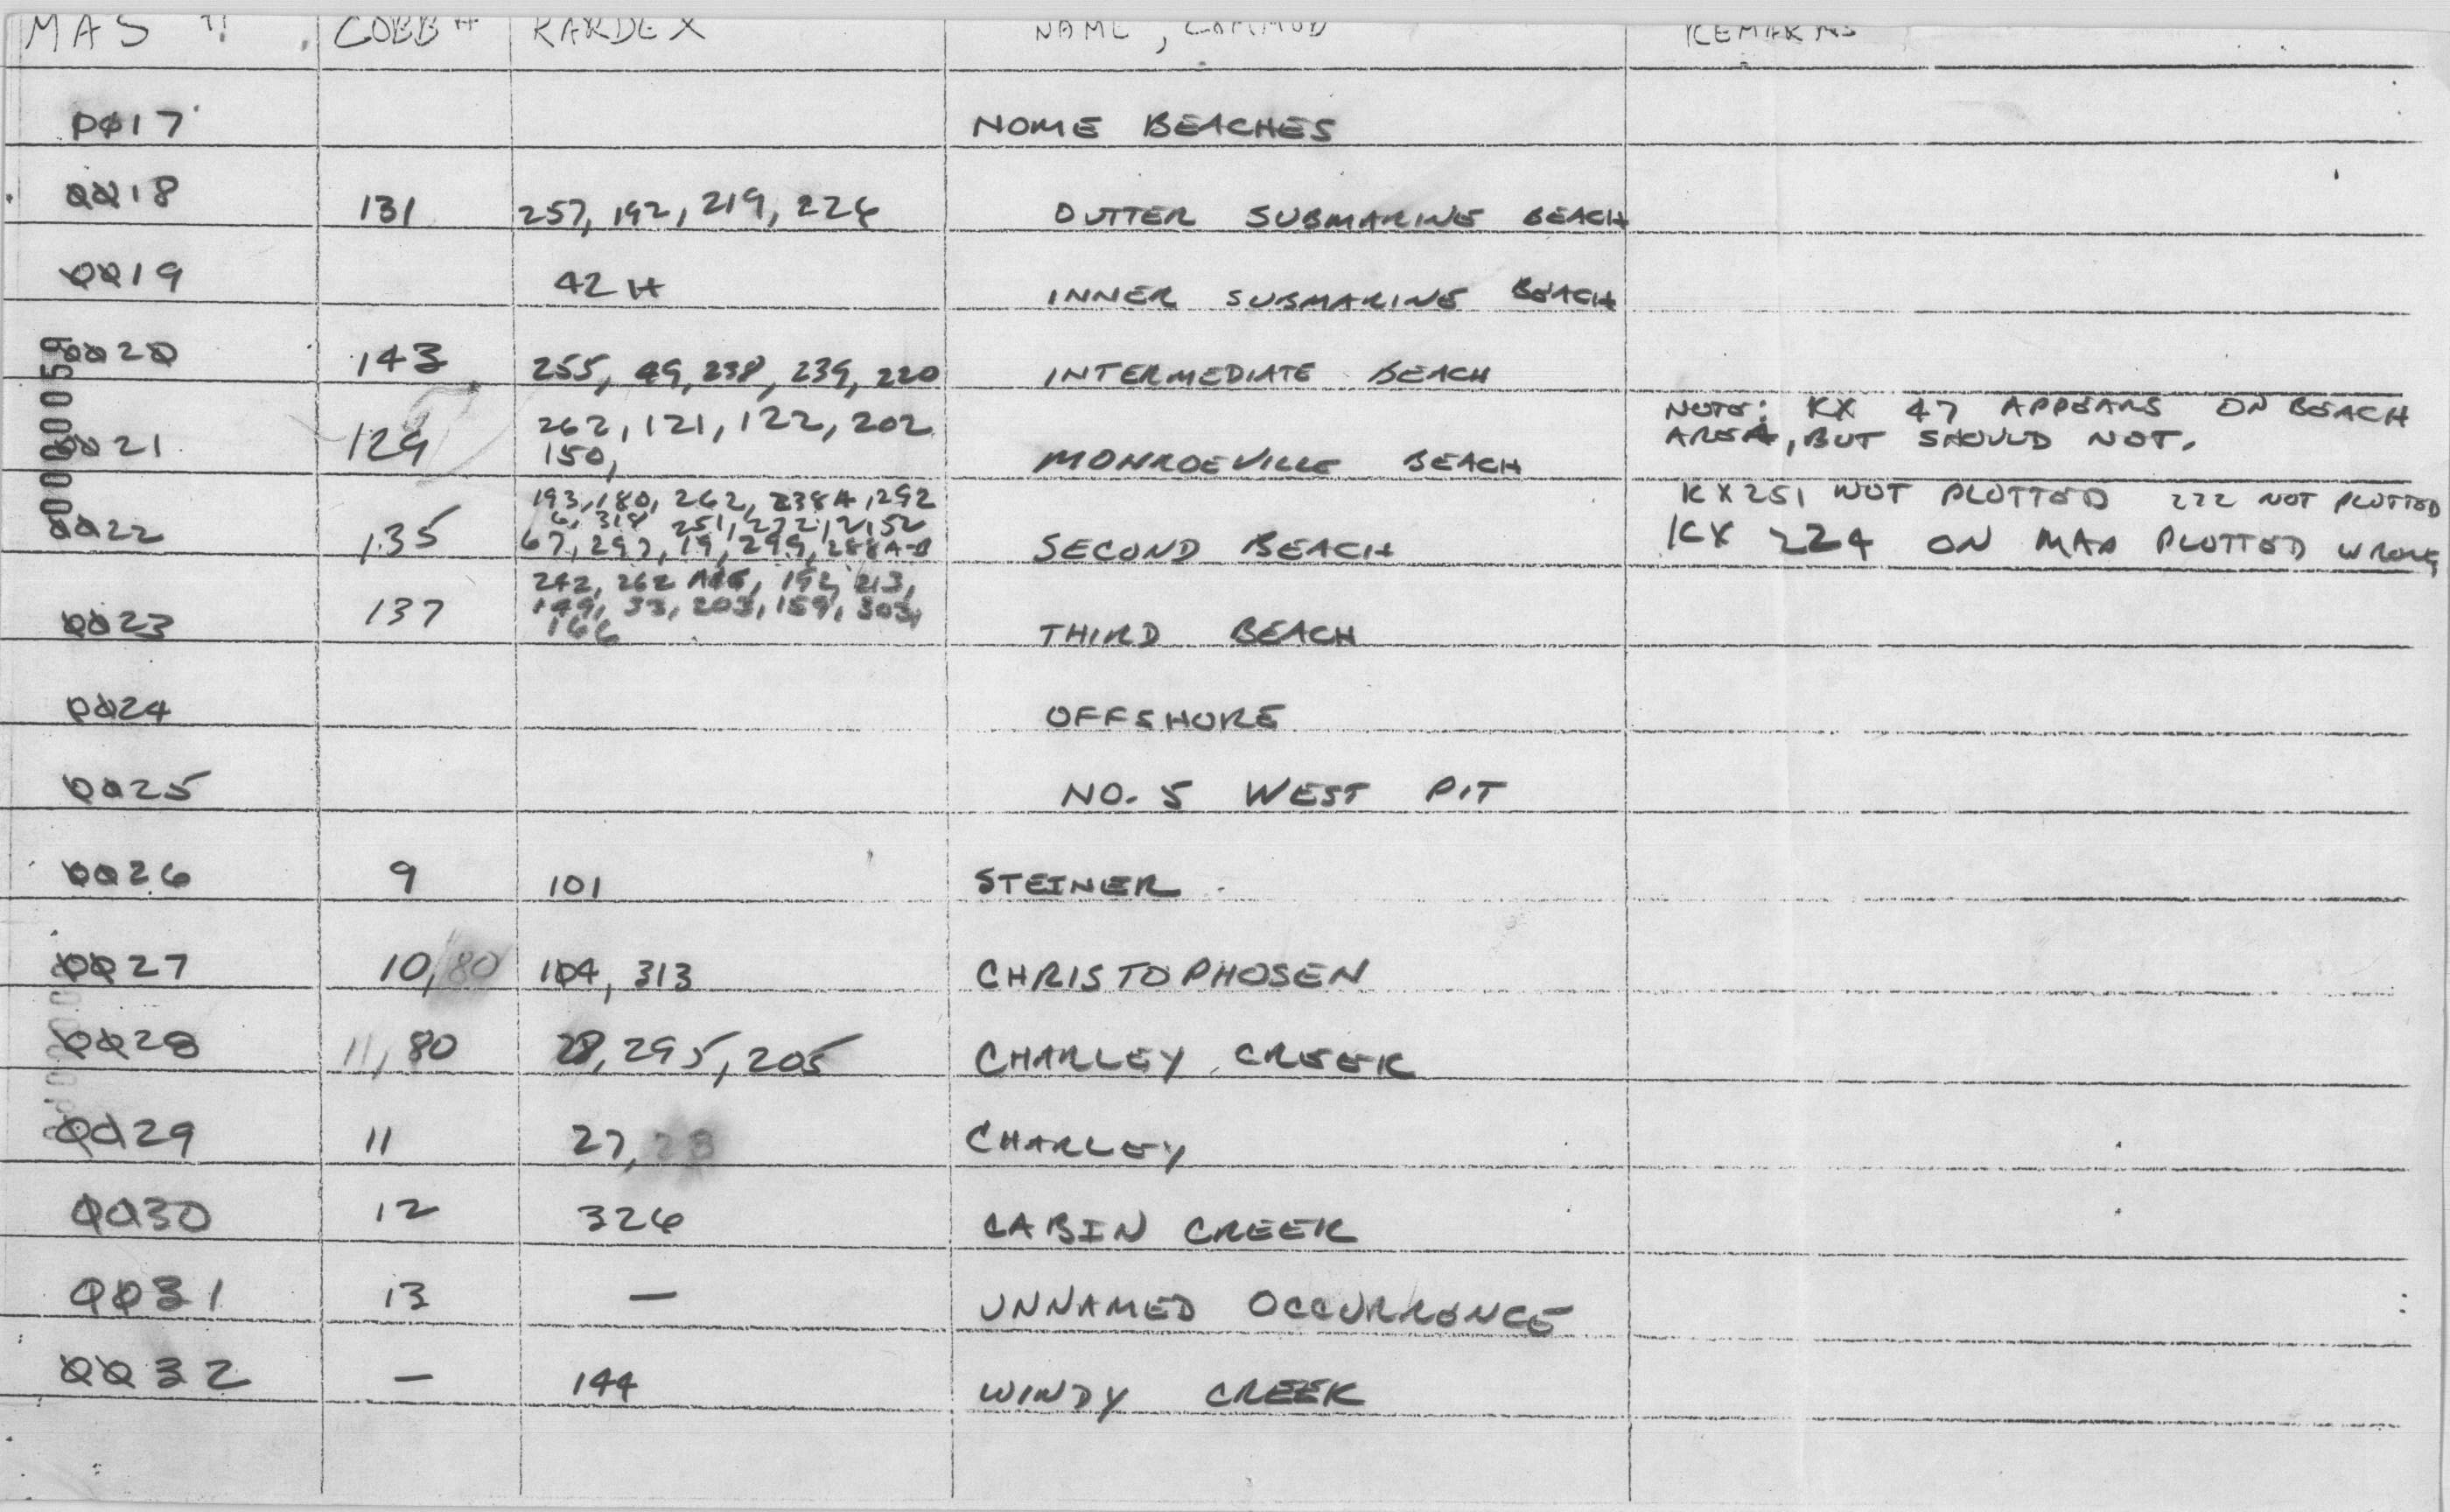 MAS # COBB # KARDEX NAME, COMMOD REMARKS
0017 NOME BEACHES
0018 131 257, 192, 219, 226 OUTTER SUBMARINE BEACH
0019 42 H INNER SUBMARINE BEACH
0020 143 255, 49, 238, 239, 220 INTERMEDIATE BEACH
0021 129 262, 121, 122, 202
150, MONROEVILLE BEACH
NOTE: KX 47 APPEARS ON BEACH
AREA, BUT SHOULD NOT.
0022 135 193, 180, 262, 238A, 292
6, 318 251, 272,
67, 297, 19, 299, 288A-B SECOND BEACH
KX251 NOT PLOTTED 222 NOT PLOTTED
KX 224 ON MAP PLOTTED WRONG
0023 137 242, 262 192, 213,
149, 33, 203, 159, 303,
166 THIRD BEACH
0024 OFFSHORE
0025 NO. 5 WEST PIT
0026 9 101 STEINER
0027 10, 80 104, 313 CHRISTOPHOSEN
0028 11, 80 28, 295, 205 CHARLEY CREEK
0029 11 27, 28 CHARLEY
0030 12 326 CABIN CREEK
0031 13 — UNNAMED OCCURRENCE
0032 — 144 WINDY CREEK
00000059